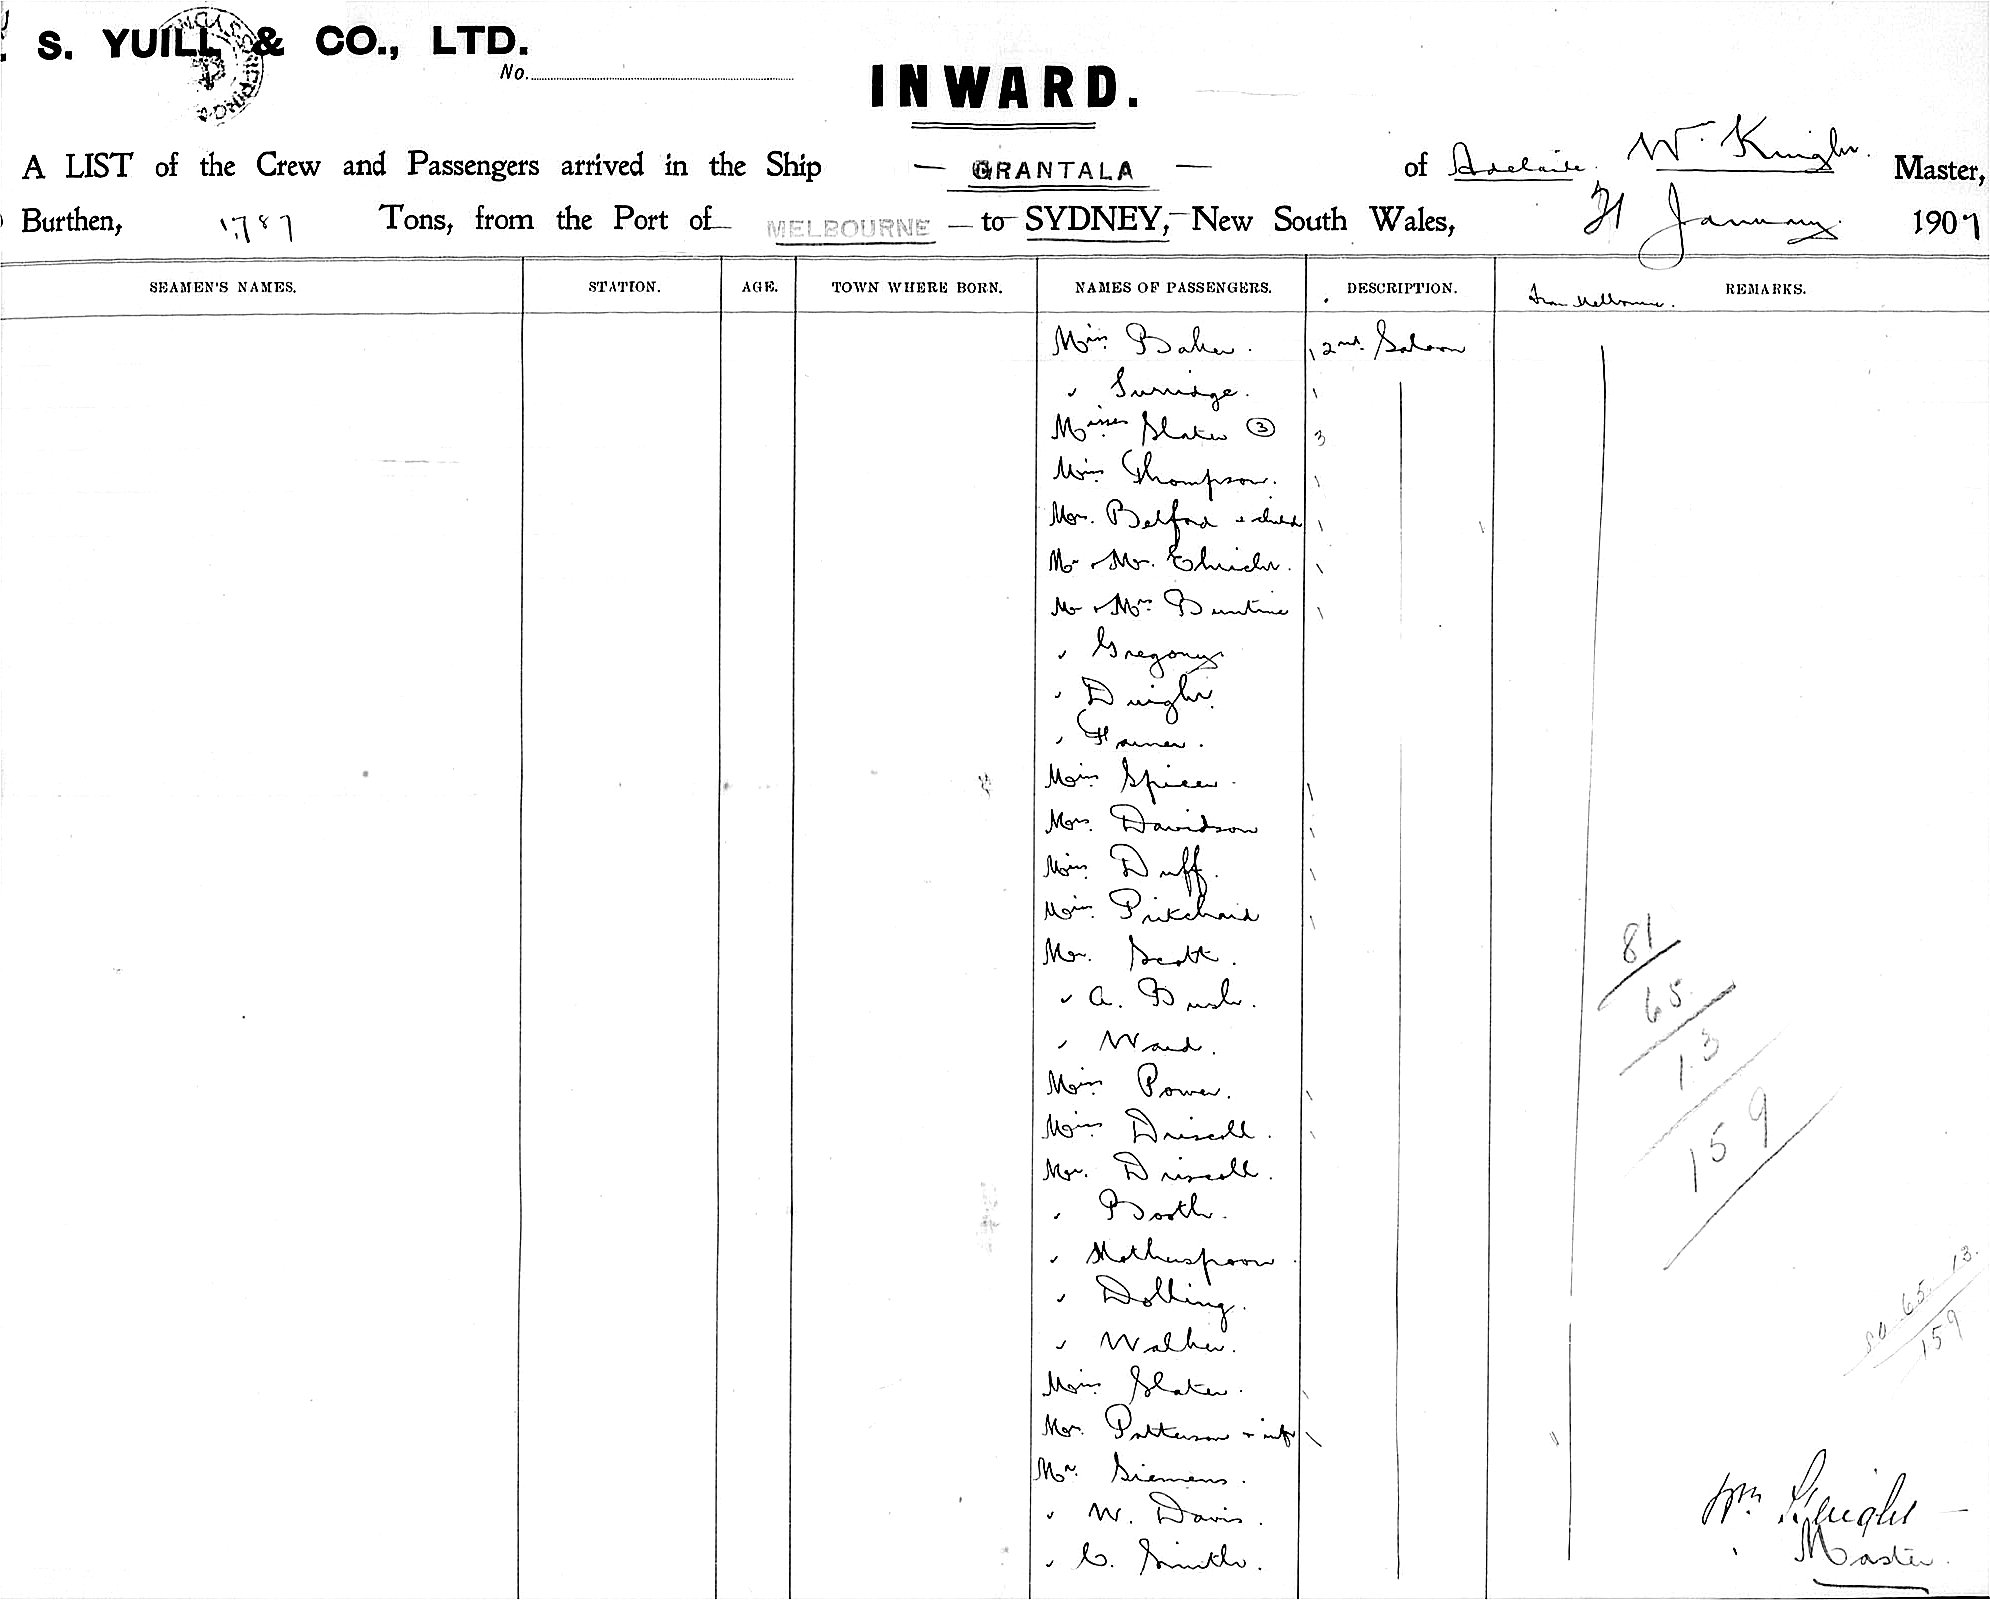 . S. YUILL & CO., LTD.
No.
INWARD.
A LIST of the Crew and Passengers arrived in the Ship — GRANTALA — of Adelaide, W. Knight. Master,
Burthen, 1,787 Tons, from the Port of MELBOURNE — to SYDNEY, New South Wales, 21 January. 1907
SEAMEN'S NAMES. STATION. AGE. TOWN WHERE BORN. NAMES OF PASSENGERS. DESCRIPTION. from Melbourne. REMARKS.
Miss Baker. 1 2nd. Saloon
" Surridge. 1
Misses Slater ③ 3
Miss Thompson. 1
Mrs. Belford & child 1 1
Mr & Mrs. 1
Mr & Mrs Buntine 1
" Gregory
" Dwight.
" Farmer.
Miss Spicer. 1
Mrs. Davidson 1
Miss Duff. 1
Miss. Pritchard 1
Mr. Scott.
" A. Bush.
" Ward.
Miss Power. 1
Miss Driscoll. 1
Mr. Driscoll.
" Booth.
"
" Dolling.
" Walker.
Miss Slater. 1
Mrs. Patterson & inft 1
Mr. Siemens.
" W. Davis.
" C. Smith.
81
65
13
159
65 13
159
Wm Knight
Master.